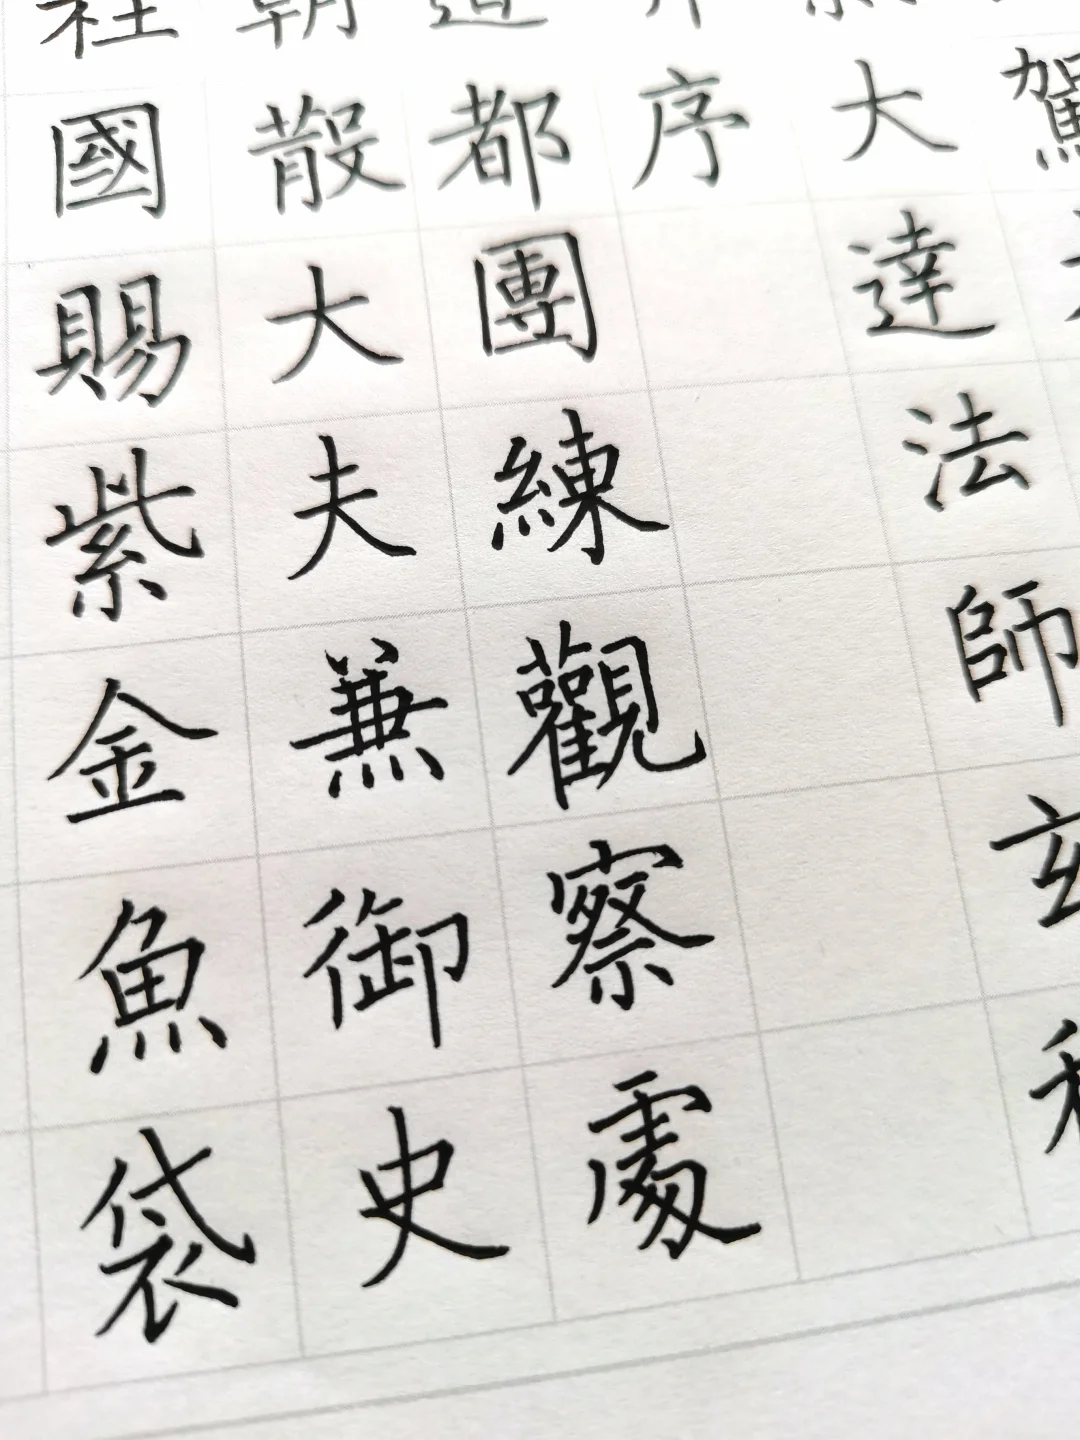 駕
大達法師玄
序
道都團練觀察處
朝散大夫兼御史
柱國賜紫金魚袋